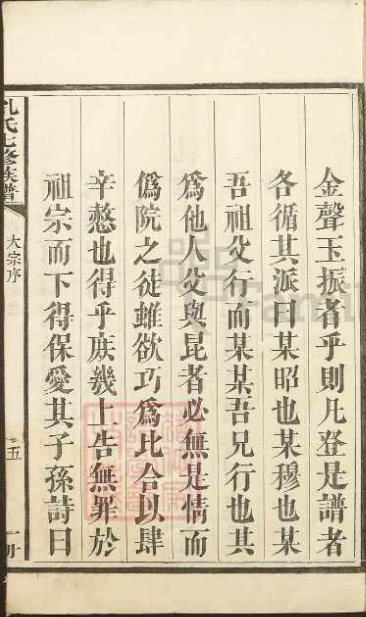 金聲玉振者乎則凡登是譜者
各循其派曰某昭也某穆也某
吾祖父行而某某吾兄行也其
爲他人父與昆者必無是情而
僞院之徒雖欲巧爲比合以肆
辛憗也得乎庶幾上告無罪於
祖宗而下得保愛其子孫詩曰
孔氏七修族譜
大宗序
五